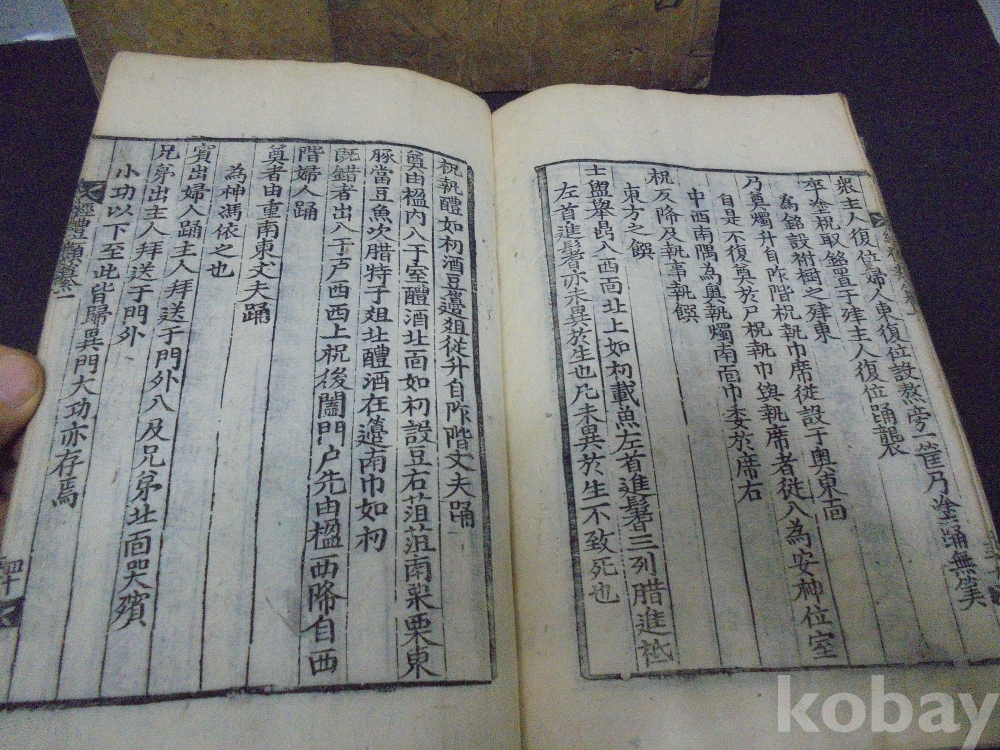 衆主人復位婦人東復位設熬旁一筐乃塗踊無筭
卒塗祝取銘置于肂主人復位踊襲
為銘設柎樹之肂東
乃奠燭升自阼階祝執巾席從設于奧東面
自是不復奠於尸祝執巾與執席者從入為安神位室
中西南隅為奧執燭南面巾委於席右
祝反降及執事執饌
東方之饌
士盥舉鼎入西面北上如初載魚左首進鬐三列腊進柢
左首進鬐者亦未異於生也凡未異於生不致死也
祝執醴如初酒豆籩俎從升自阼階丈夫踊
奠由楹內入于室醴酒北面如初設豆右菹菹南栗栗東
豚當豆魚次腊特于俎北醴酒在籩南巾如初
既錯者出入于户西西上祝後闔門户先由楹西降自西
階婦人踊
奠者由重南東丈夫踊
為神馮依之也
賓出婦人踊主人拜送于門外入及兄弟北面哭殯
兄弟出主人拜送于門外
小功以下至此皆歸異門大功亦存焉
經禮類纂一
四十
kobay